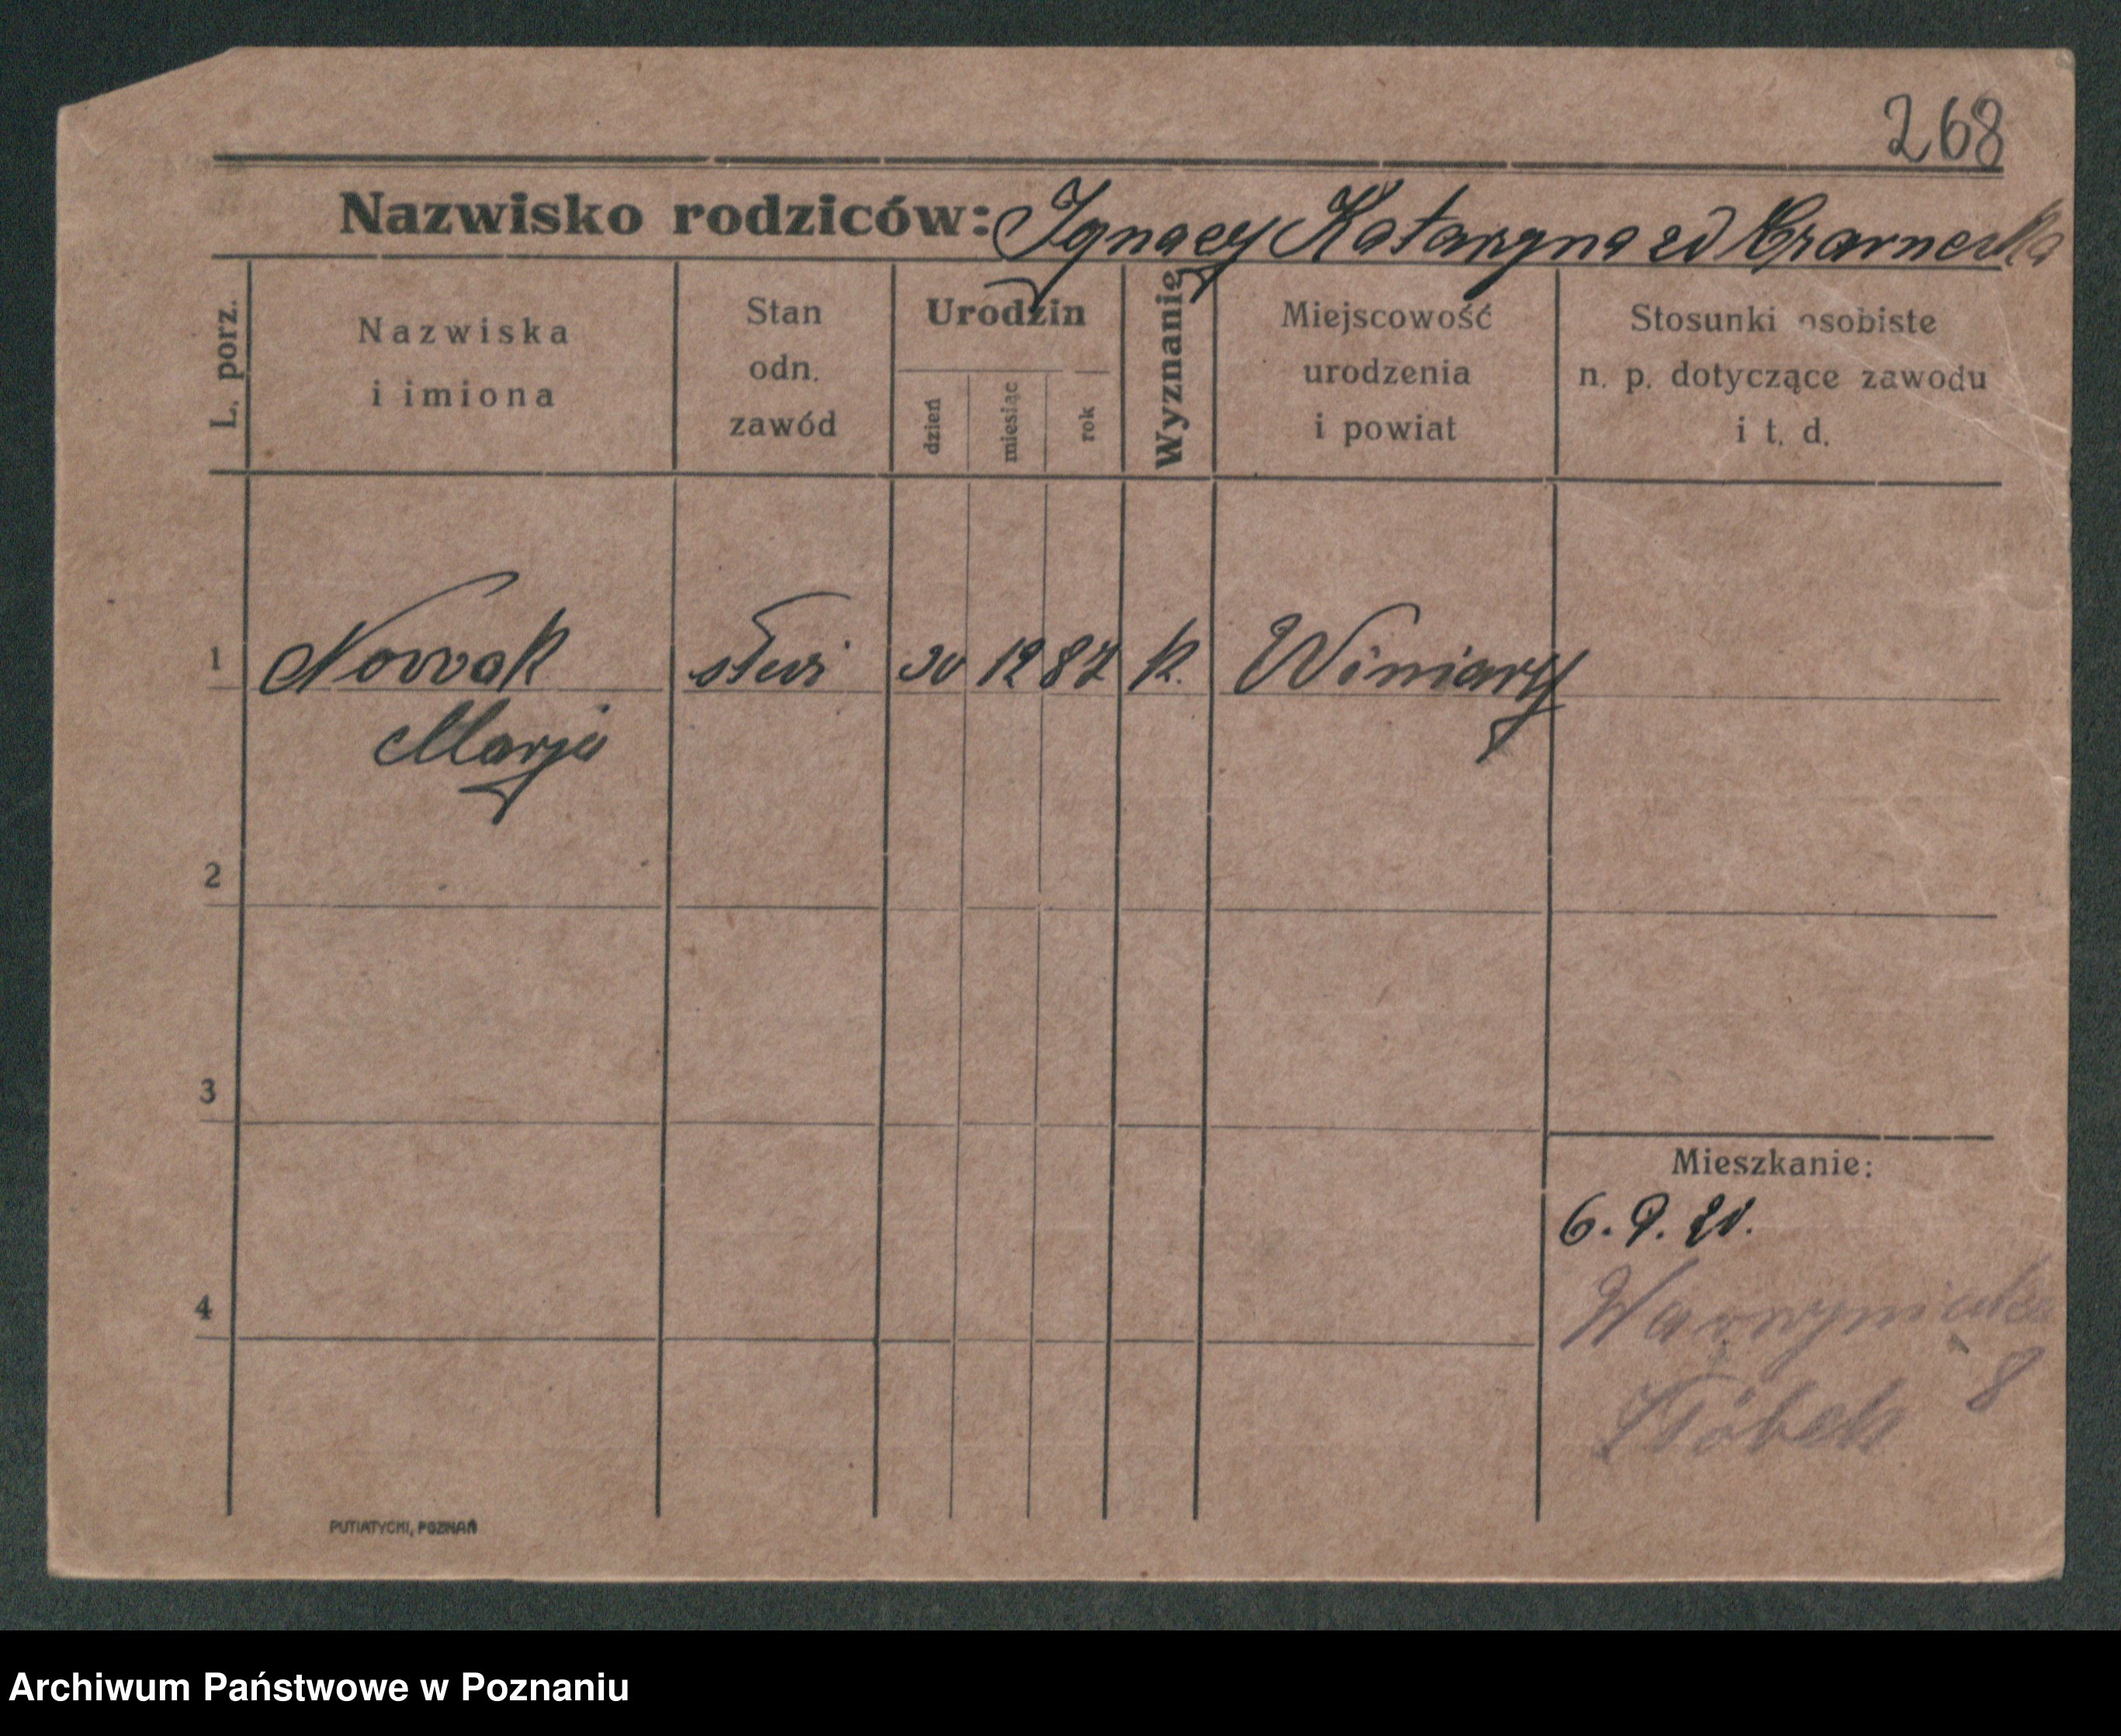 268
Nazwisko rodziców: Ignacy Katarzyna zd Czarnecka
L. porz.
Nazwiska
i imiona
Stan
odn.
zawód
Urodzin
dzień
miesiąc
rok
Wyznanie
Miejscowość
urodzenia
i powiat
Stosunki osobiste
n. p. dotyczące zawodu
i t. d.
1 Nowak 30 12 87 k. Winiary
Marja
2
3
4
Mieszkanie:
6. 9. 20.
8
PUTIATYCKI, POZNAŃ
Archiwum Państwowe w Poznaniu